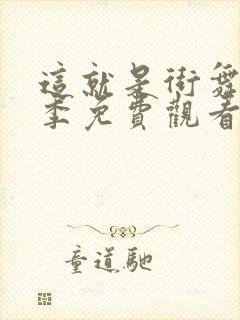 這就是街舞
季免費觀看
童道馳